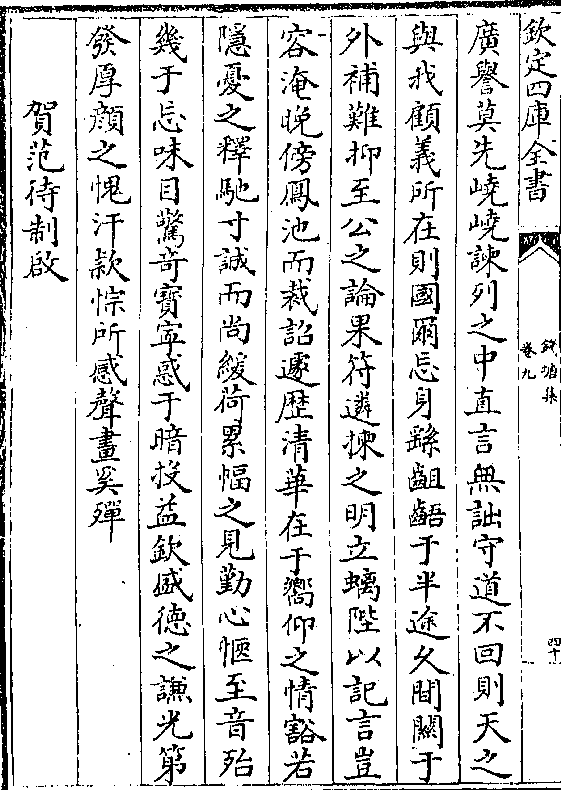 欽定四庫全書
錢塘集
卷九
四十
廣譽莫先嶢嶢諫列之中直言無詘守道不回則天之
與我顧義所在則國爾忘身繇齟齬于半途久間關于
外補難抑至公之論果符遴揀之明立螭陛以記言豈
容淹晚傍鳳池而裁詔遽歴清華在于嚮仰之情豁若
隱憂之釋馳寸誠而尚緩荷累幅之見勤心愜至音殆
幾于忘味目驚竒寳寧惑于暗投益欽盛徳之謙光第
發厚顔之愧汗欵悰所感聲畫奚殫
賀范待制啟